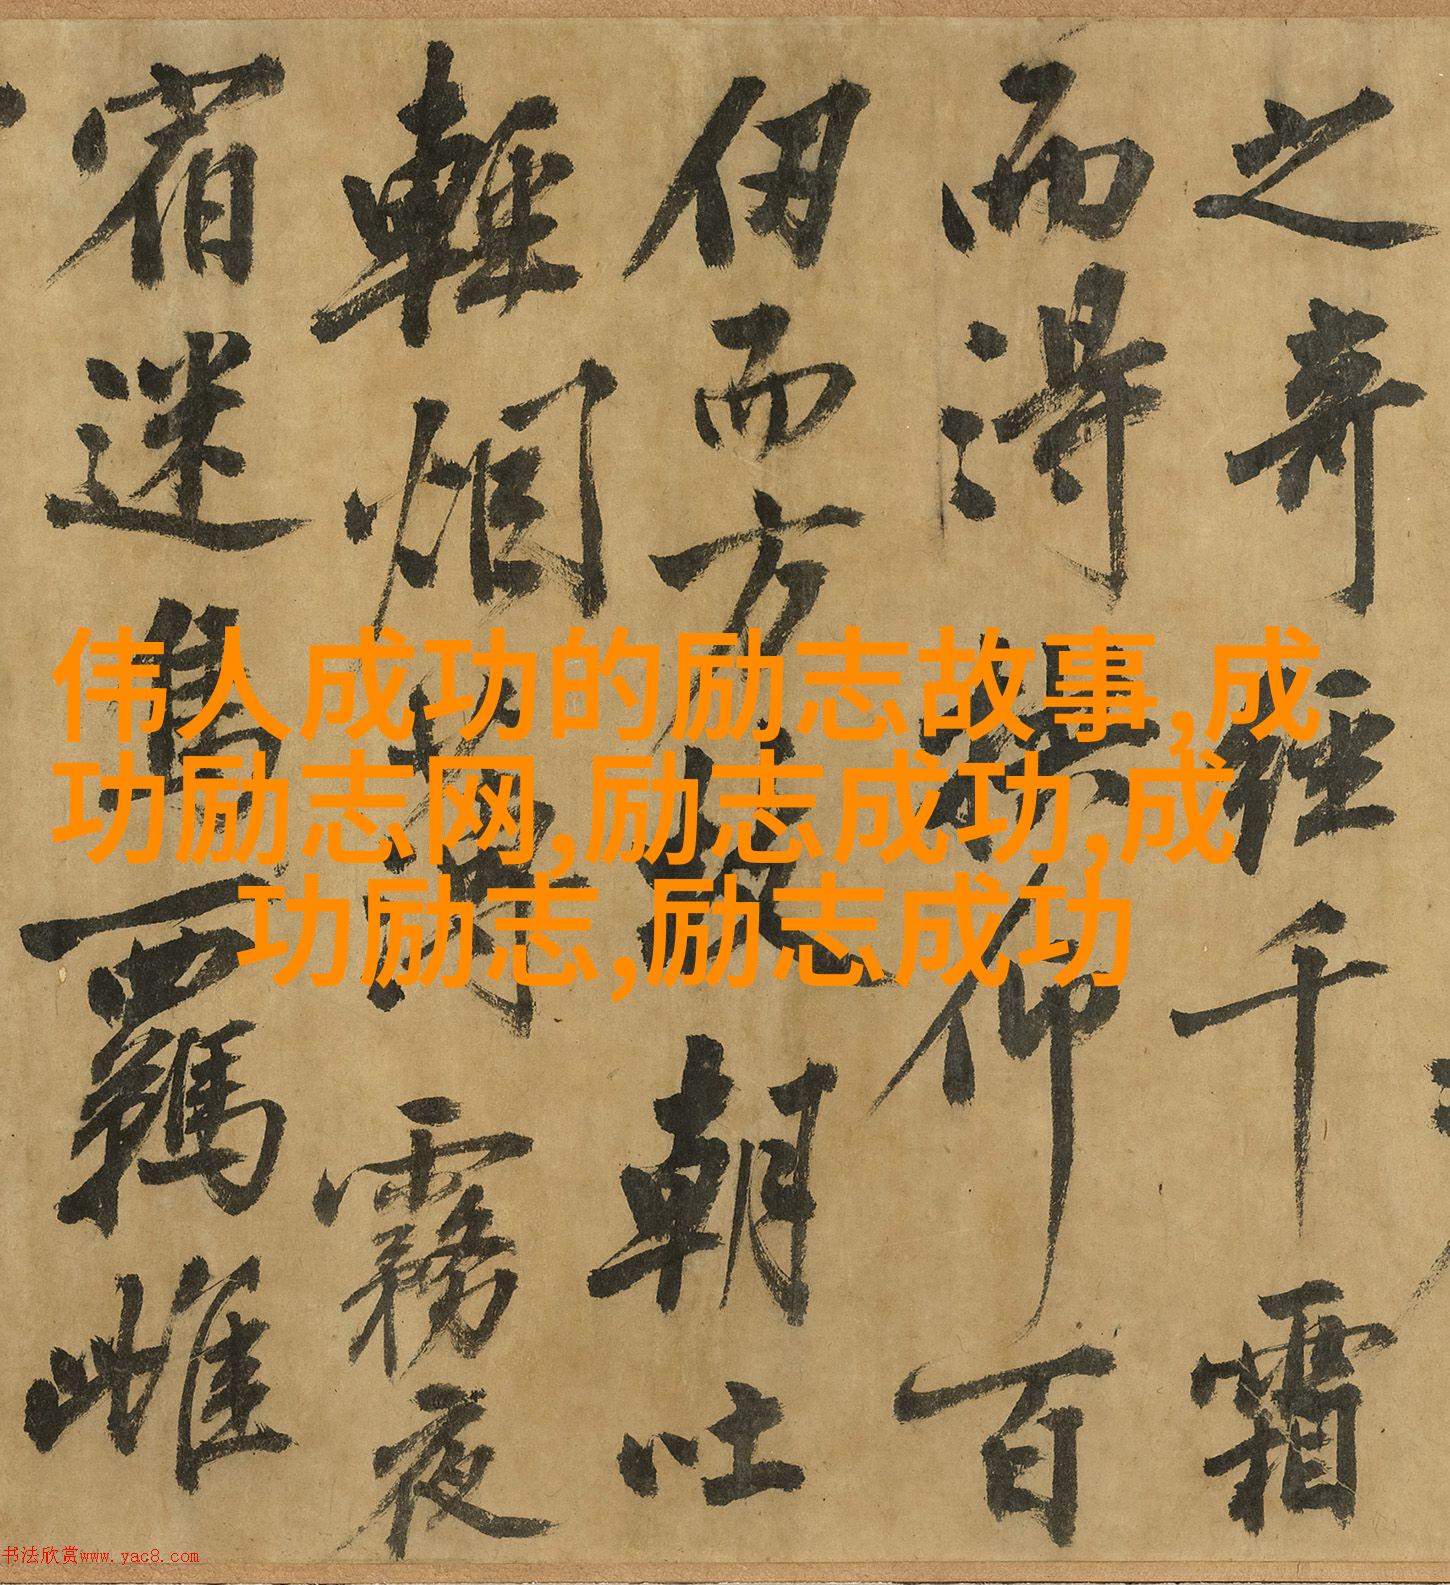 之奇經千霜
而得拱仰百
仞而方枝朝吐
輕烟薄霧夜
宿迷鳥羈雌
伟人成功的励志故事,成
功励志网,励志成功,成
功励志,励志成功
书法欣赏www.yac8.com